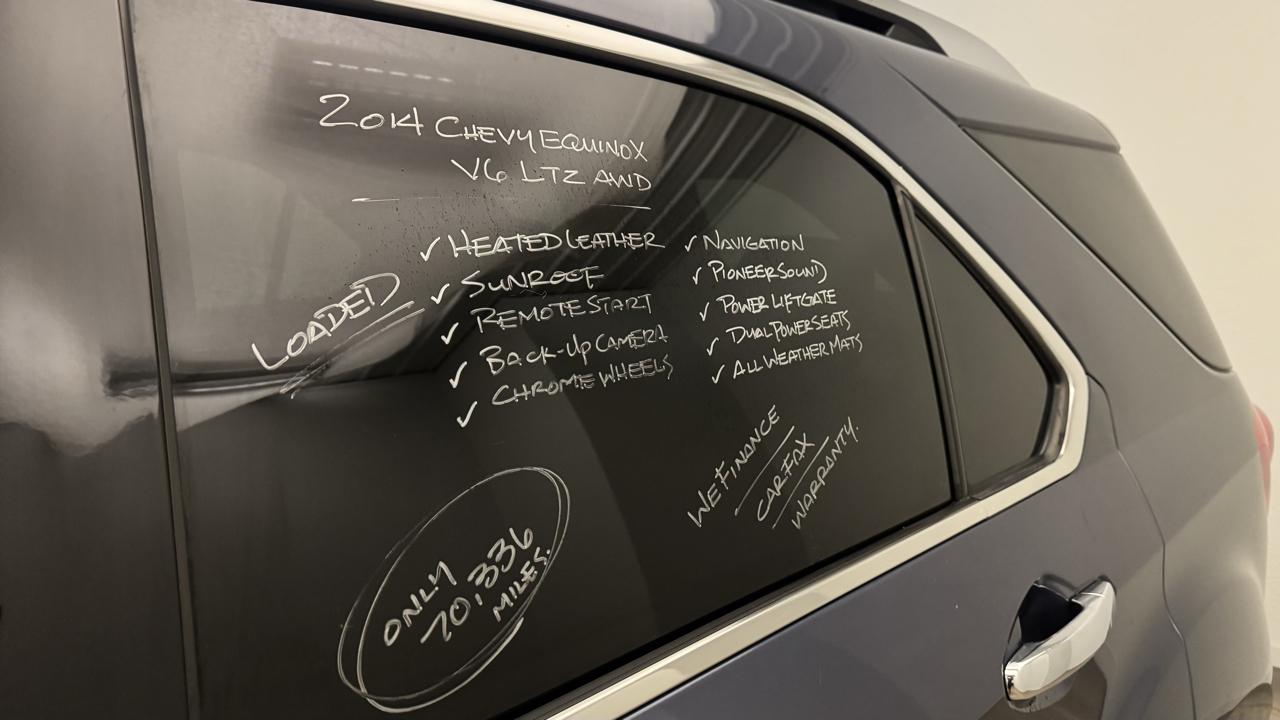 2014 CHEVY EQUINOX
V6 LTZ AWD
LOADED
✓ HEATED LEATHER
✓ SUNROOF
✓ REMOTE START
✓ BACK-UP CAMERA
✓ CHROME WHEELS
✓ NAVIGATION
✓ PIONEER SOUND
✓ POWER LIFTGATE
✓ DUAL POWER SEATS
✓ ALL WEATHER MATS
WE FINANCE
CARFAX
WARRANTY.
ONLY
70,336
MILES.